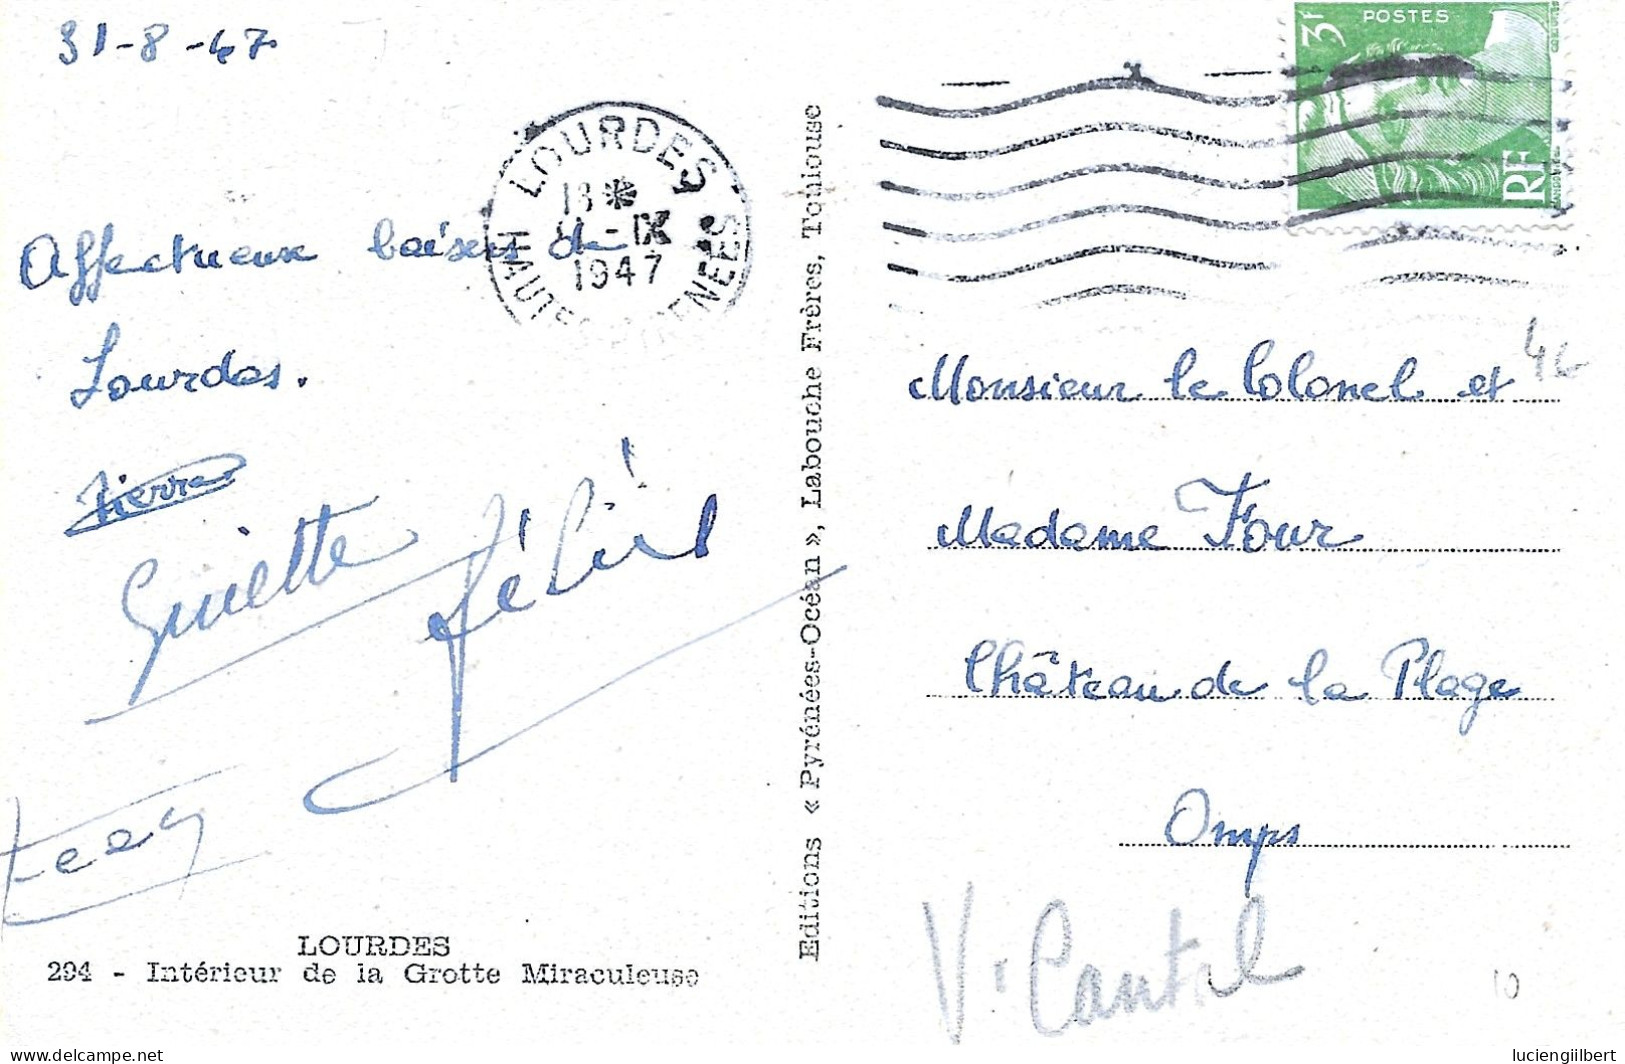 31-8-47
Affectueux baisers de
Lourdes.
Pierre
Guiette
LOURDES
294 - Intérieur de la Grotte Miraculeuse
LOURDES
18*
-IX
1947
HAUTES PYRENEES
Editions « Pyrénées-Océan », Labouche Frères, Toulouse
3f
POSTES
RF
Monsieur le Colonel et
Madame Four
Château de la Plage
Omps
Cantal
10
luciengiilbert
delcampe.net